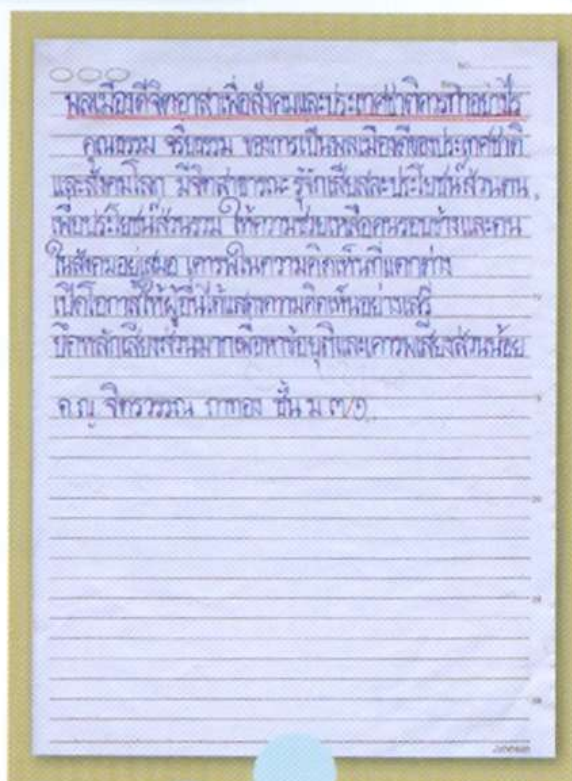 NO.
พลเมืองดีจิตอาสาเพื่อสังคมและประเทศชาติควรทำอย่างไร
คุณธรรม จริยธรรม ของการเป็นพลเมืองดีของประเทศชาติ
และสังคมโลก มีจิตสาธารณะ รู้จักเสียสละประโยชน์ส่วนตน
เพื่อประโยชน์ส่วนรวม ให้ความช่วยเหลือคนรอบข้างและคน
ในสังคมอยู่เสมอ เคารพในความคิดเห็นที่แตกต่าง
เปิดโอกาสให้ผู้อื่นได้แสดงความคิดเห็นอย่างเสรี
ยึดหลักเสียงส่วนมากเพื่อหาข้อยุติและเคารพเสียงส่วนน้อย
ด.ญ. จิตรวรรณ ชั้น ม.๓/๑